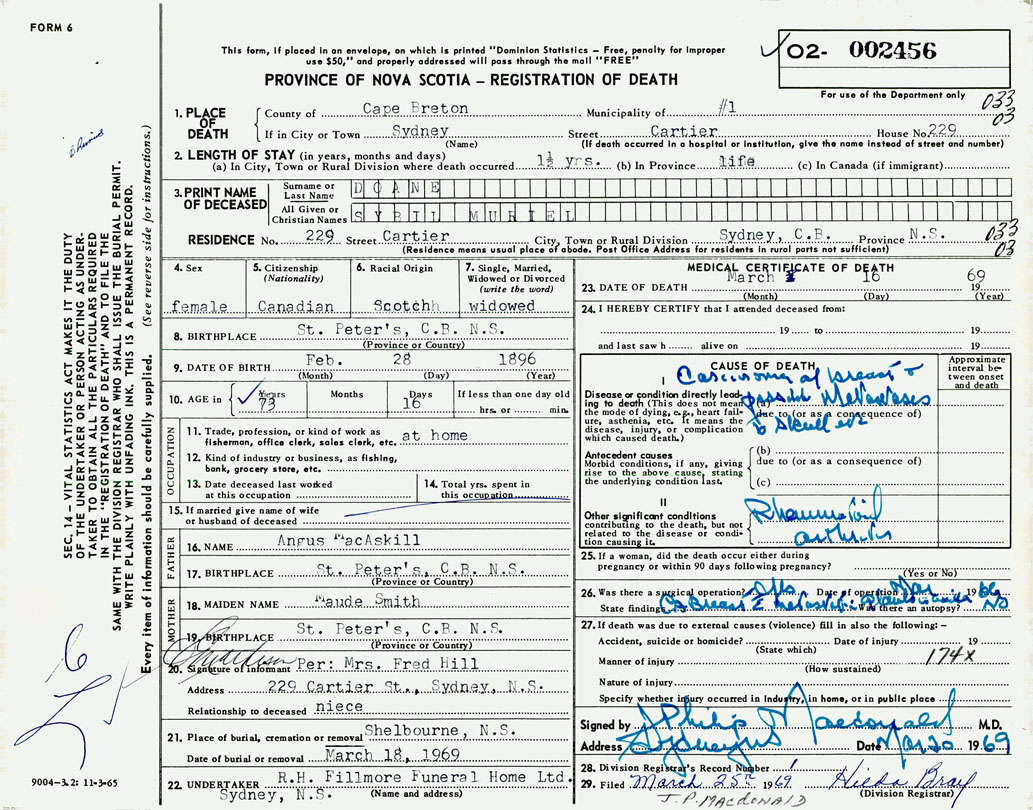 FORM 6
This form, if placed in an envelope, on which is printed "Dominion Statistics – Free, penalty for improper
use $50," and properly addressed will pass through the mail "FREE"
PROVINCE OF NOVA SCOTIA – REGISTRATION OF DEATH
02- 002456
For use of the Department only
033
03
1. PLACE OF DEATH
County of Cape Breton Municipality of #1
If in City or Town Sydney Street Cartier House No. 229
(Name) (If death occurred in a hospital or institution, give the name instead of street and number)
2. LENGTH OF STAY (in years, months and days)
(a) In City, Town or Rural Division where death occurred 1½ yrs. (b) In Province life (c) In Canada (if immigrant)
3. PRINT NAME OF DECEASED
Surname or Last Name DOANE
All Given or Christian Names SYBIL MURIEL
RESIDENCE No. 229 Street Cartier City, Town or Rural Division Sydney, C.B. Province N.S.
(Residence means usual place of abode. Post Office Address for residents in rural parts not sufficient)
033
03
SEC. 14 – VITAL STATISTICS ACT MAKES IT THE DUTY
OF THE UNDERTAKER OR PERSON ACTING AS UNDER-
TAKER TO OBTAIN ALL THE PARTICULARS REQUIRED
IN THE "REGISTRATION OF DEATH" AND TO FILE THE
SAME WITH THE DIVISION REGISTRAR WHO SHALL ISSUE THE BURIAL PERMIT.
WRITE PLAINLY WITH UNFADING INK. THIS IS A PERMANENT RECORD.
Every item of information should be carefully supplied. (See reverse side for instructions.)
4. Sex
female
5. Citizenship
(Nationality)
Canadian
6. Racial Origin
Scotchh
7. Single, Married,
Widowed or Divorced
(write the word)
widowed
8. BIRTHPLACE St. Peter's, C.B. N.S.
(Province or Country)
9. DATE OF BIRTH Feb. 28 1896
(Month) (Day) (Year)
10. AGE in
Years Months Days If less than one day old
73 16 hrs. or min.
OCCUPATION
11. Trade, profession, or kind of work as
fisherman, office clerk, sales clerk, etc. at home
12. Kind of industry or business, as fishing,
bank, grocery store, etc.
13. Date deceased last worked
at this occupation
14. Total yrs. spent in
this occupation
15. If married give name of wife
or husband of deceased
FATHER
16. NAME Angus MacAskill
17. BIRTHPLACE St. Peter's, C.B. N.S.
(Province or Country)
MOTHER
18. MAIDEN NAME Maude Smith
19. BIRTHPLACE St. Peter's, C.B. N.S.
(Province or Country)
20. Signature of informant Per: Mrs. Fred Hill
Address 229 Cartier St., Sydney, N.S.
Relationship to deceased niece
21. Place of burial, cremation or removal Shelbourne, N.S.
Date of burial or removal March 18, 1969
22. UNDERTAKER R.H. Fillmore Funeral Home Ltd.
Sydney, N.S. (Name and address)
9004-3.2: 11-3-65
MEDICAL CERTIFICATE OF DEATH
23. DATE OF DEATH March 16 1969
(Month) (Day) (Year)
24. I HEREBY CERTIFY that I attended deceased from:
19 to 19
and last saw h alive on 19
CAUSE OF DEATH
Approximate interval between onset and death
I
Carcinoma of breast
Disease or condition directly leading to death (This does not mean the mode of dying, e.g., heart failure, asthenia, etc. It means the disease, injury, or complication which caused death.)
(a) Metastases
due to (or as a consequence of)
to Skull
Antecedent causes
Morbid conditions, if any, giving rise to the above cause, stating the underlying condition last.
(b)
due to (or as a consequence of)
(c)
II
Other significant conditions
contributing to the death, but not related to the disease or condition causing it.
Rheumatoid
arthritis
25. If a woman, did the death occur either during
pregnancy or within 90 days following pregnancy?
(Yes or No)
26. Was there a surgical operation? Date of operation 19
State finding Ca Breast Was there an autopsy? No
27. If death was due to external causes (violence) fill in also the following: –
Accident, suicide or homicide? Date of injury 19
(State which)
Manner of injury 174X
(How sustained)
Nature of injury
Specify whether injury occurred in Industry, in home, or in public place
Signed by J Philip Macdonald M.D.
Address Sydney NS Date Mar 20 1969
28. Division Registrar's Record Number
29. Filed March 25th 1969 Hilda Bray
(Division Registrar)
J.P. MACDONALD